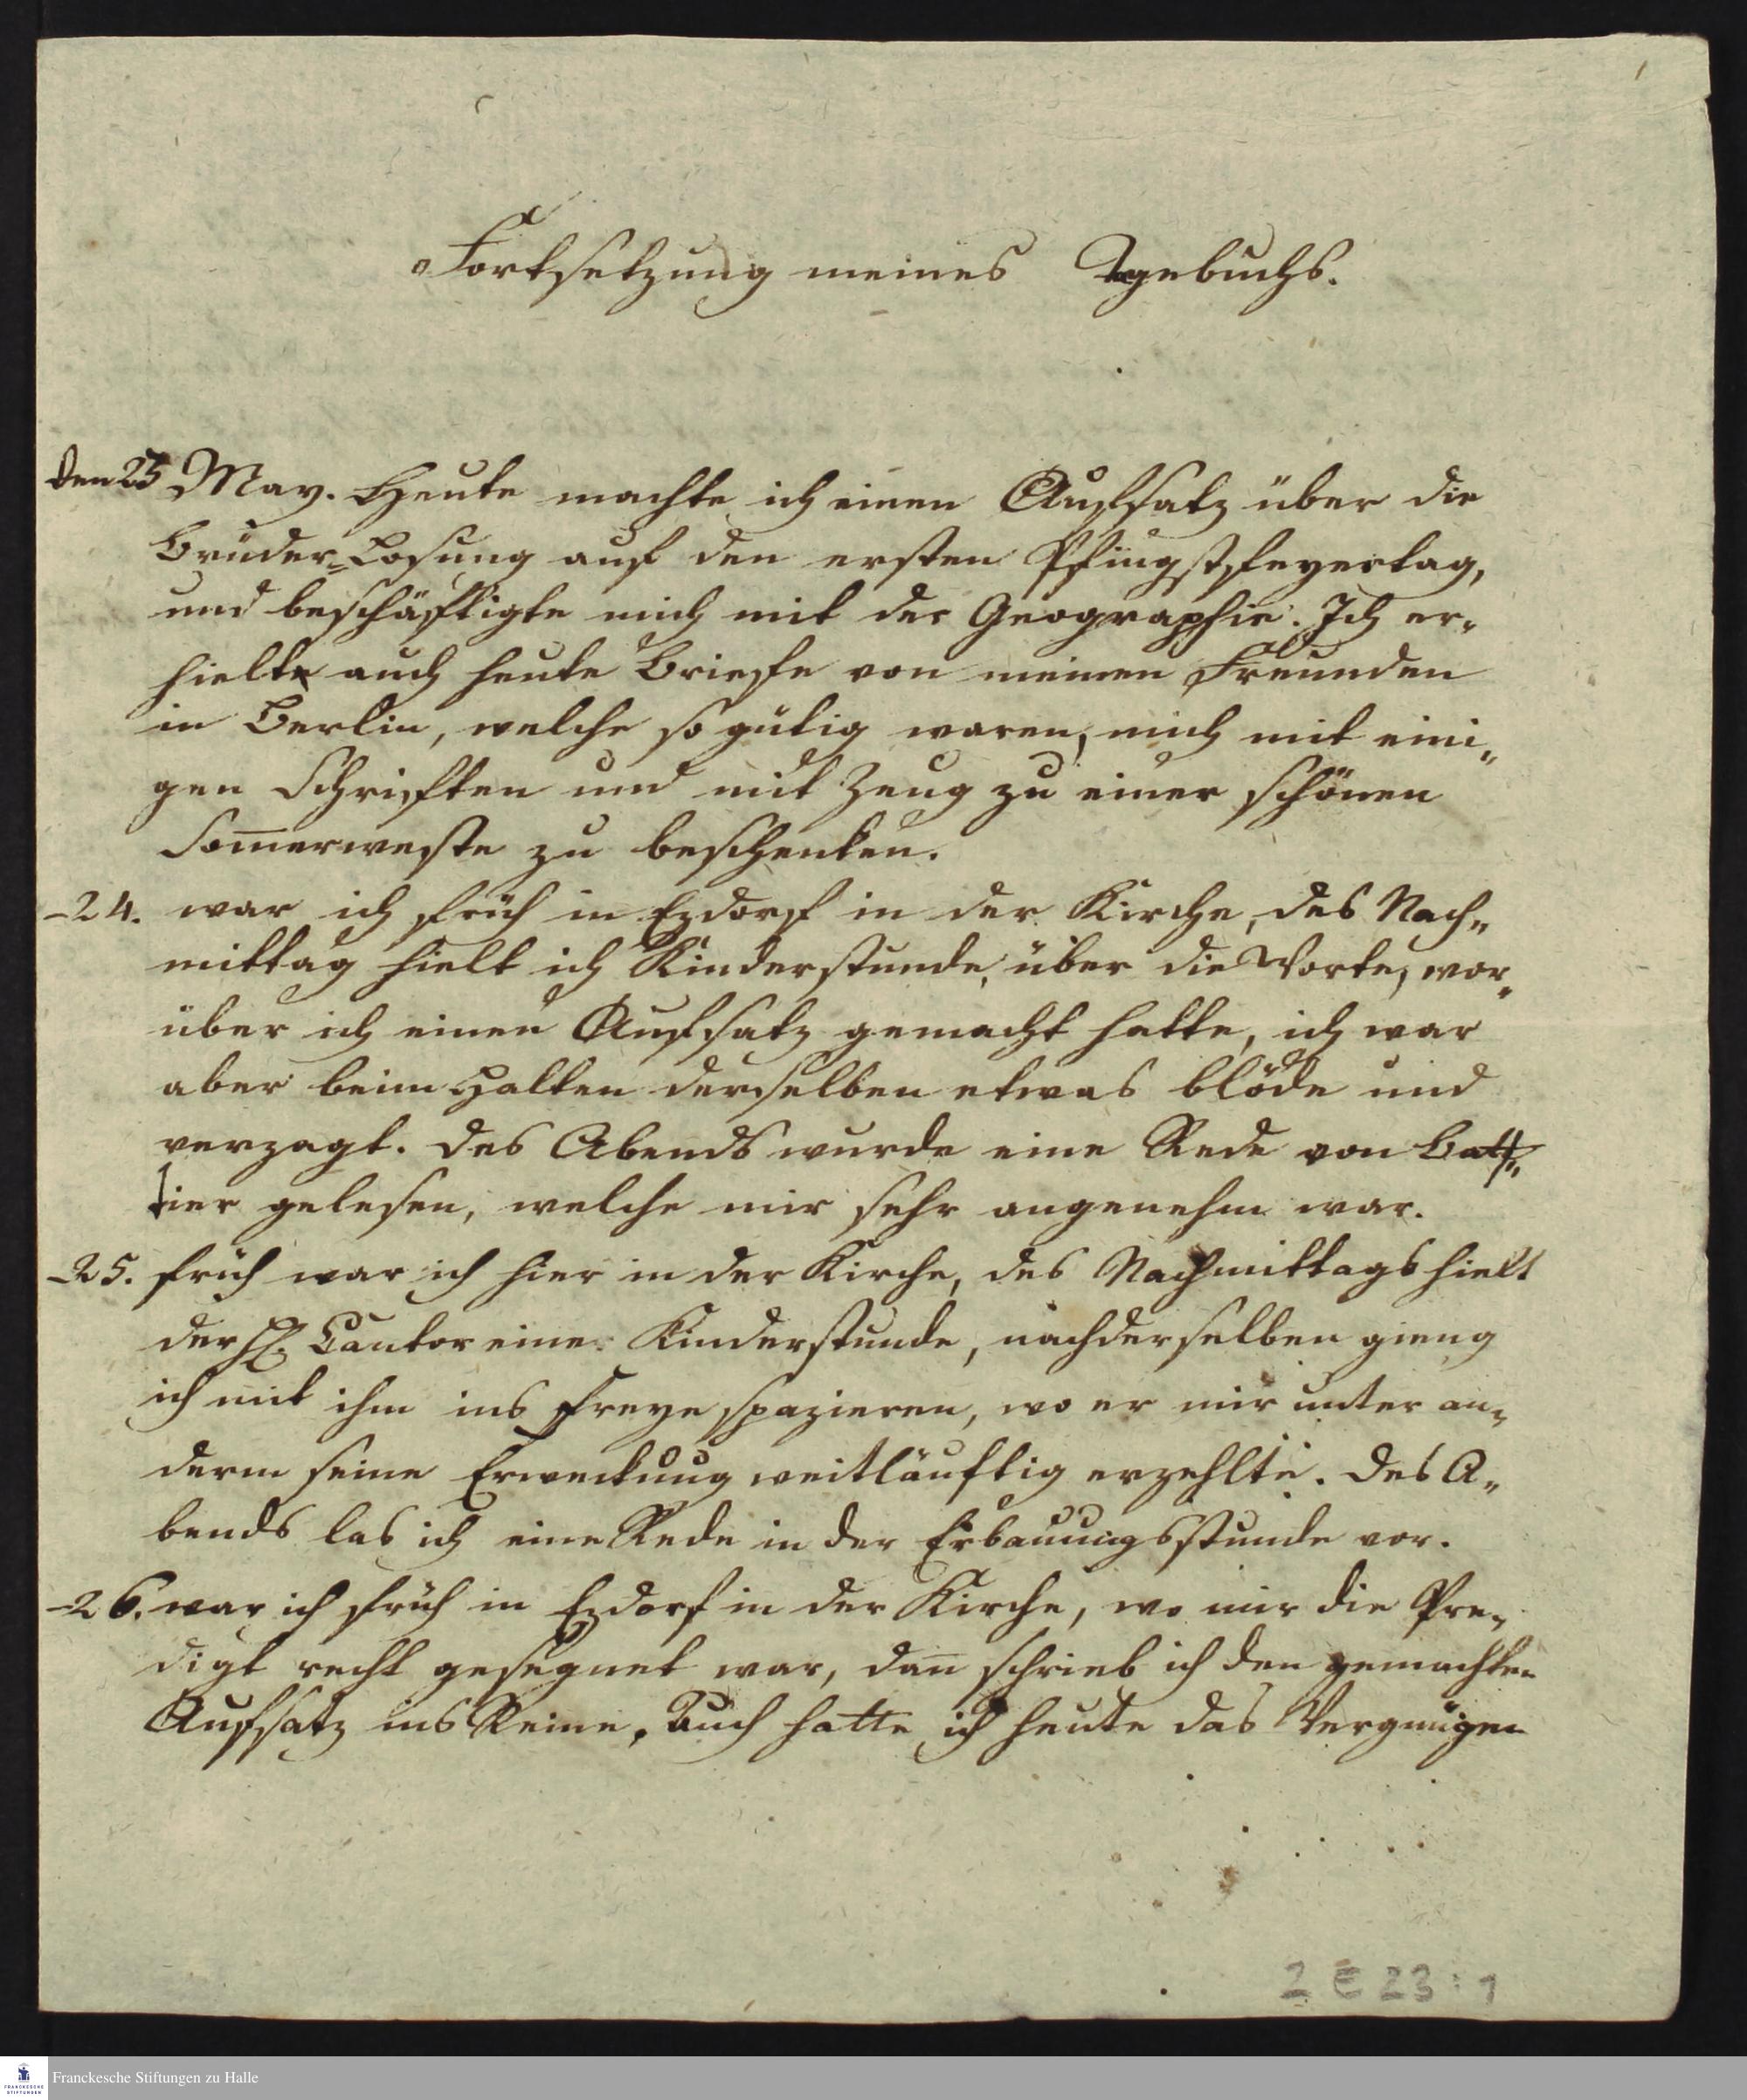 1
Fortsetzung meines Tagebuchs.
den 23 May. Heute machte ich einen Aufsatz über die
Brüder-Losung auf den ersten Pfingstfeyertag,
und beschäftigte mich mit der Geographie. Ich er-
hielt auch heute Briefe von meinen Freunden
in Berlin, welche so gütig waren, mich mit eini-
gen Schriften und mit Zeug zu einer schönen
Som̄erweste zu beschenken.
-24. war ich früh in Ezdorf in der Kirche, des Nach-
mittag hielt ich Kinderstunde, über die Worte, wor-
über ich einen Aufsatz gemacht hatte, ich war
aber beim Halten derselben etwas blöde und
verzagt. Des Abends wurde eine Rede von Bat-
tier gelesen, welche mir sehr angenehm war.
-25. früh war ich hier in der Kirche, des Nachmittags hielt
der H. Cantor eine Kinderstunde, nach derselben gieng
ich mit ihm ins Freye spazieren, wo er mir unter an-
derm seine Erweckung weitläuftig erzehlte. Des A-
bends las ich eine Rede in der Erbauungsstunde vor.
-26. war ich früh in Ezdorf in der Kirche, wo mir die Pre-
digt recht gesegnet war, dan̄ schrieb ich den gemachten
Aufsatz ins Reine. Auch hatte ich heute das Vergnügen
2 E 23 : 1
Franckesche Stiftungen zu Halle
FRANCKESCHE
STIFTUNGEN